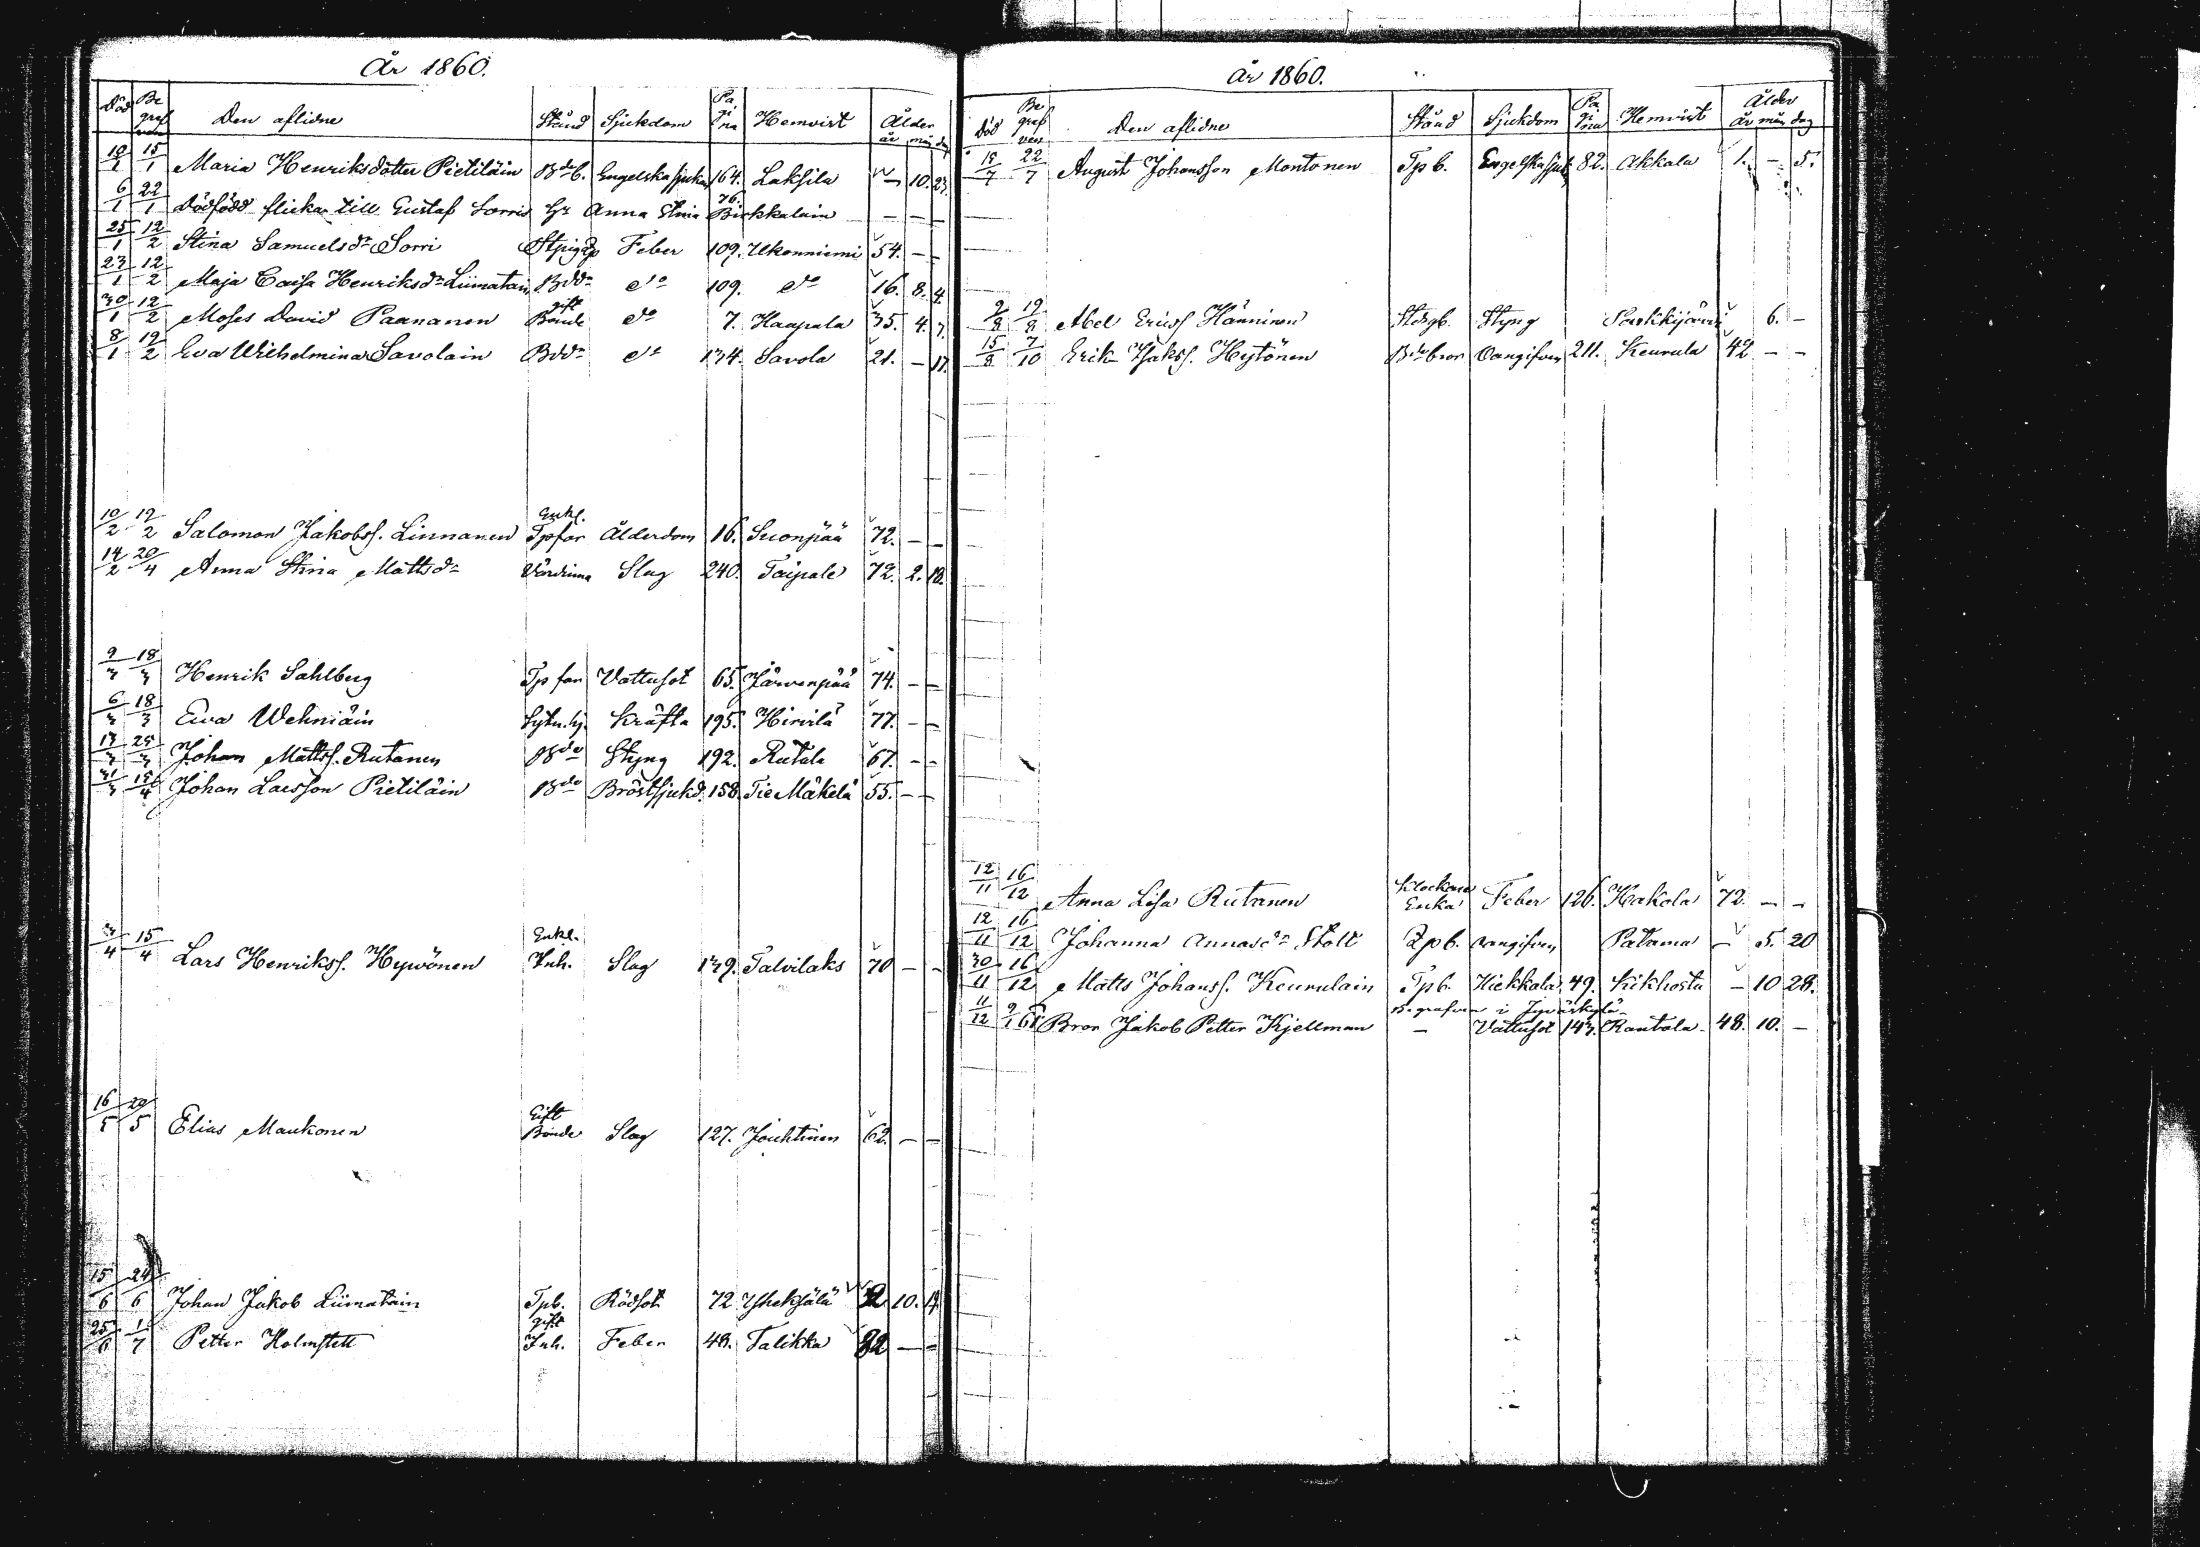 År 1860.
Död Be graf ven Den aflidne Stånd Sjukdom Pa gi na Hemvist Ålder år mån dag
10/1 15/1 Maria Henriksdotter Pietiläin Bdeb. Engelska sjukan 164. Laksila – 10. 23.
6/1 22/1 Dödfödd flicka till Gustaf Sorri Anna Stina 76. – – –
25/1 12/2 Stina Samuelsdr Sorri Feber 109. Ukonniemi 54. – –
23/1 12/2 Maja Caisa Henriksdr Liimatain Bddr do 109. do 16. 8. 4.
30/1 12/2 Moses David Paananen gift Bonde do 7. Haapala 35. 4. 7.
8/1 12/2 Eva Wilhelmina Savolain Bddr do 134. Savola 21. – 17.
10/2 12/2 Salomon Jakobss. Linnanen Enkl. Tpfar Ålderdom 16. Suonpää 72. – –
14/2 20/4 Anna Stina Mattsdr Värdinna Slag 240. Taipale 72. 2. 18.
9/3 18/3 Henrik Sahlberg Tp far Vattusot 65. Järvenpää 74. – –
6/3 18/3 Eva Wehniäin Kräfta 195. Hirvilä 77. – –
13/3 25/3 Johan Mattss. Rutanen Bde Styng 192. Rutala 67. – –
31/3 15/4 Johan Larsson Pietiläin Bde Bröstsjukd. 158. Tie Mäkelä 55. – –
3/4 15/4 Lars Henrikss. Hyvönen Enkl. Inh. Slag 139. Talvilaks 70 – –
16/5 20/5 Elias Maukonen Gift Bonde Slag 127. Jouhtinen 62. – –
15/6 24/6 Johan Jakob Liimatain Tpb. Rödsot 72 10.
25/6 1/7 Petter Holmstett gift Inh. Feber 48. Talikka 82 – –
År 1860.
Död Be graf ven Den aflidne Stånd Sjukdom Pa gi na Hemvist Ålder år mån dag
15/7 22/7 August Johansson Montonen Tp b. Engelska sjuk 82. Akkala 1. – 5.
9/8 19/8 Abel Erics Hänninen Styng 6. –
15/8 7/10 Erik Isakss. Hytönen Bdebror oangifven 211. Keurula 42 – –
12/11 16/12 Anna Lisa Rutanen Klockare Enka Feber 126. Hakola 72. – –
12/11 16/12 Johanna Annasdr Stolt Tp b. oangifven Patama – 5. 20
30/11 16/12 Matts Johanss. Keurulain Tpb. Hiekkala 49. Kikhosta – 10 28.
Begrafven i Jyväskylä
11/12 9/1 61 Bron Jakob Petter Kjellman – Vattusot 143. Rantala 48. 10. –